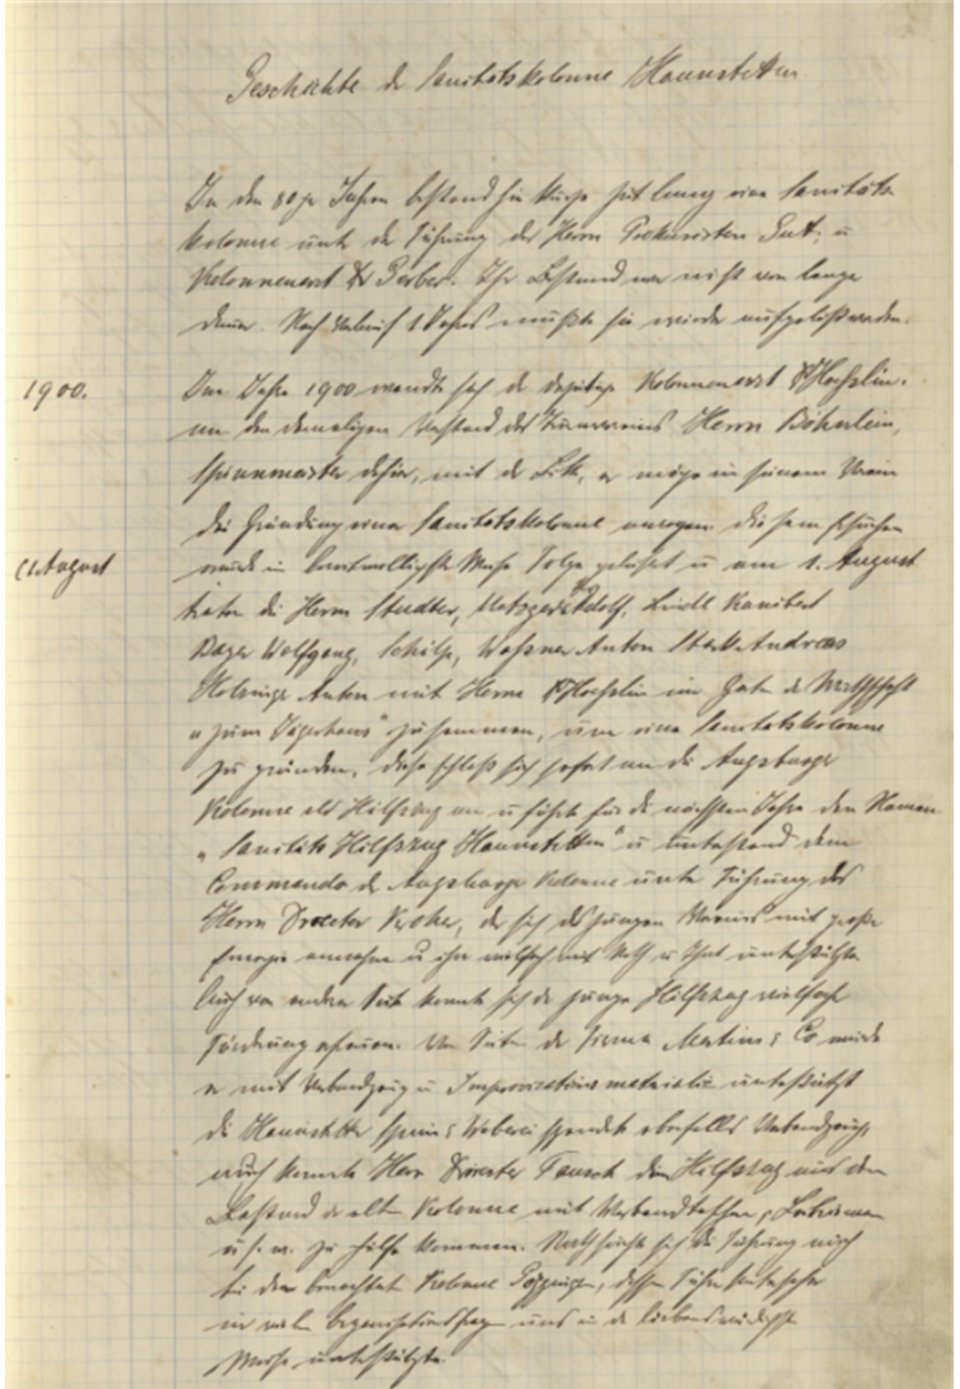 Geschichte der Sanitätskolonne Haunstetten
In den 80ger Jahren bestand hier kurze Zeit lang eine Sanitäts
kolonne unter der Führung des Herrn Prokuristen Gut, u
Kolonnenarzt Dr Gerber. Ihr Bestand war nicht von langer
Dauer. Nach Verlauf 1 Jahres mußte sie wieder aufgelöst werden.
1900.
Im Jahre 1900 wandte sich der Kolonnenarzt Dr Hoeßlin.
an den damaligen Vorstand des Turnvereins Herrn Böhnlein,
Spinnmeister dahier, mit der Bitte, er möge in seinem Verein
die Gründung einer Sanitätskolonne anregen. Diesem Ersuchen
wurde in bereitwilligster Weise Folge geleistet u am 1. August
(1. August
traten die Herrn Studter, Metzger Adolf, Lindl
Bayer Wolfgang, Schilp, Anton Stark Andreas
Anton mit Herrn Dr Hoeßlin im Garten der Wirthschaft
"zum Jägerhaus" zusammen, um eine Sanitätskolonne
zu gründen, diese schloß sich sofort an die Augsburger
Kolonne als Hilfszug an u führte für die nächsten Jahre den Namen
"Sanitäts Hilfszug Haunstetten" u unterstand dem
Commando der Augsburger Kolonne unter Führung des
Herrn Director Kroher, der sich des jungen Vereins mit großer
Energie annahm u ihn vielfach mit Rath u That unterstützte.
Auch von anderer Seite konnte sich der junge Hilfszug vielfach
Förderung erfreuen. Von Seiten der Firma Martini & Co wurde
er mit Verbandzeug u Improvisationsmaterialien unterstützt
die Haunstetter Spinn & Weberei spendete ebenfalls Verbandzeug,
auch konnte Herr Director Tausch dem Hilfszug aus dem
Bestand der alten Kolonne mit Verbandtaschen,
u.s.w. zu Hilfe kommen. sich die Führung auch
bei der benachbarten Kolonne Göggingen, dessen Führer
in vielen Organisationsfragen uns in der liebenswürdigsten
Weise unterstützte.